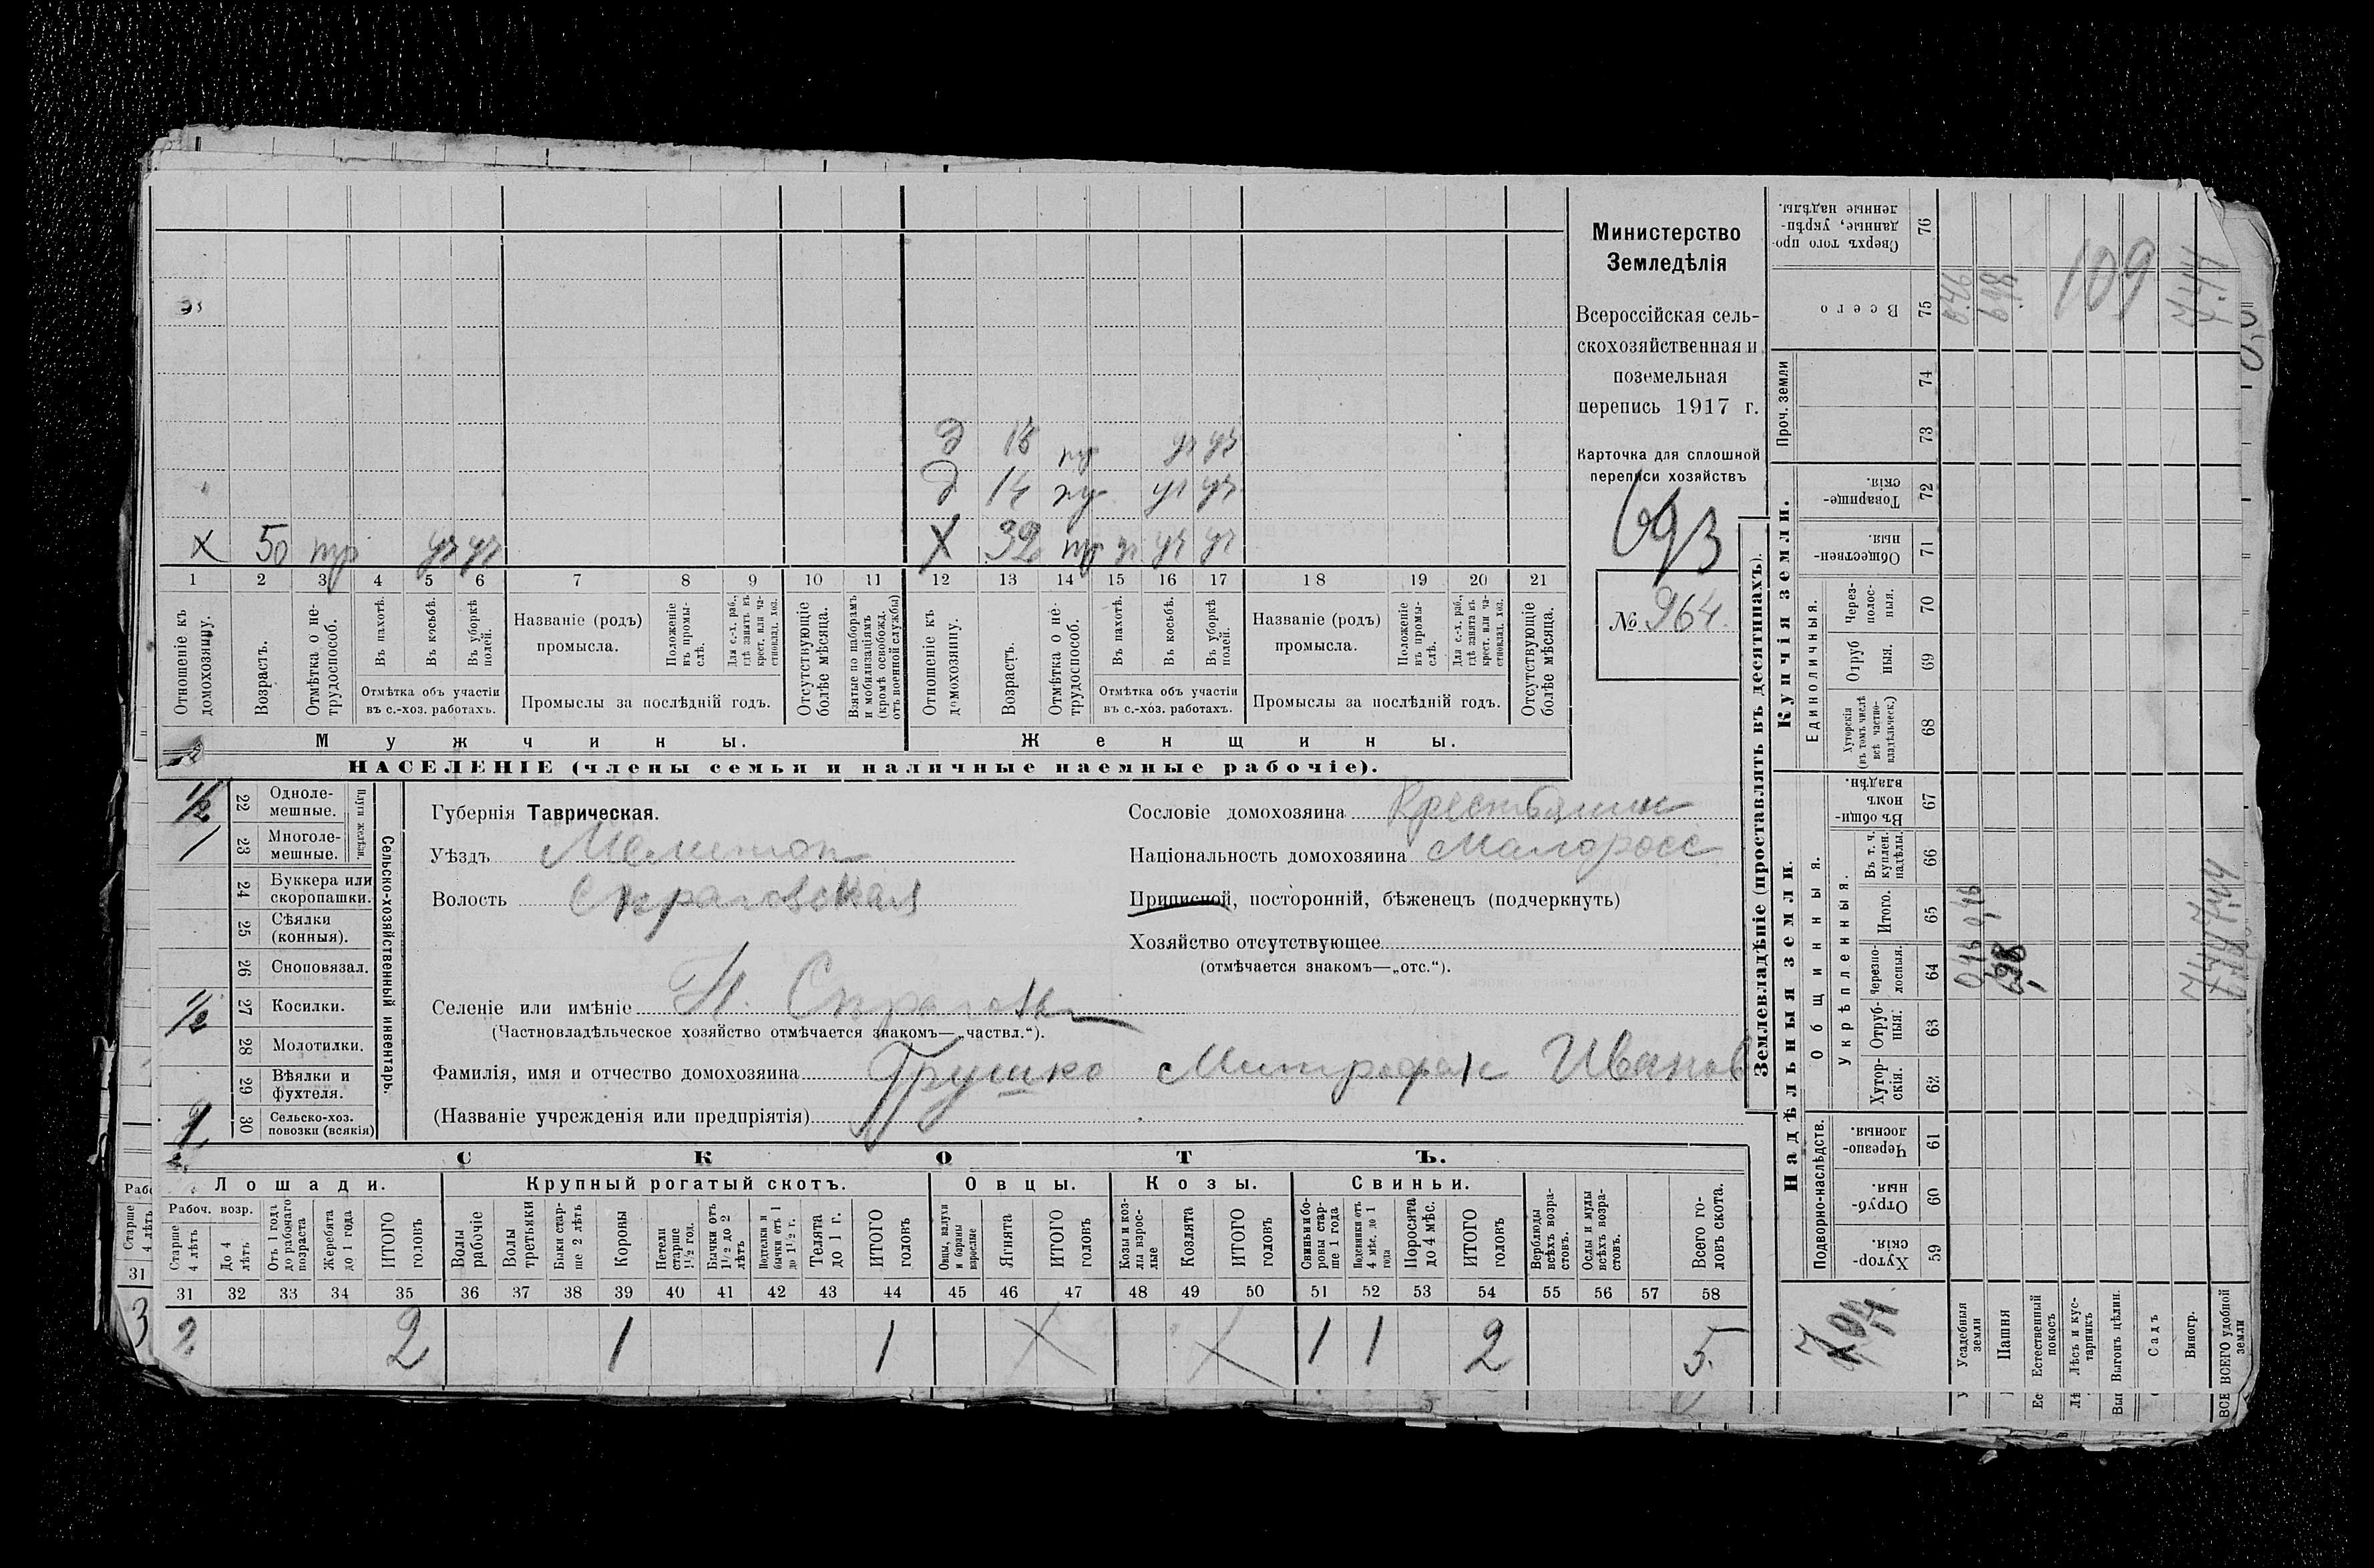 Министерство
Земледѣлія
Всероссійская сель-
скохозяйственная и
поземельная
перепись 1917 г.
Карточка для сплошной
переписи хозяйствъ
693
№ 964.
д 18 тр уч уч
д 14 тр уч уч
х 50 тр уч уч х 32 тр уч уч уч
1 2 3 4 5 6 7 8 9 10 11 12 13 14 15 16 17 18 19 20 21
Отношеніе къ домохозяину.
Возрастъ.
Отмѣтка о не-трудоспособ.
Въ пахотѣ.
Въ косьбѣ.
Въ уборкѣ полей.
Отмѣтка объ участіи
въ с.-хоз. работахъ.
Названіе (родъ)
промысла.
Положеніе въ промы-слѣ.
Для с.-х. раб., гдѣ занятъ въ крест. или ча-стновлад. хоз.
Промыслы за послѣдній годъ.
Отсутствующіе болѣе мѣсяца.
Взятые по наборамъ и мобилизаціямъ (кромѣ освобожд. отъ военной службы)
Отношеніе къ домохозяину.
Возрастъ.
Отмѣтка о не-трудоспособ.
Въ пахотѣ.
Въ косьбѣ.
Въ уборкѣ полей.
Отмѣтка объ участіи
въ с.-хоз. работахъ.
Названіе (родъ)
промысла.
Положеніе въ промы-слѣ.
Для с.-х. раб., гдѣ занята въ крест. или ча-стновлад. хоз.
Промыслы за послѣдній годъ.
Отсутствующіе болѣе мѣсяца.
Мужчины. Женщины.
НАСЕЛЕНІЕ (члены семьи и наличные наемные рабочіе).
Сельско-хозяйственный инвентарь.
Плуги желѣзн.
1/2 22 Одноле-мешные.
1 23 Многоле-мешные.
24 Буккера или скоропашки.
25 Сѣялки (конныя).
26 Сноповязал.
1/2 27 Косилки.
28 Молотилки.
29 Вѣялки и фухтеля.
30 Сельско-хоз. повозки (всякія)
Губернія Таврическая.
Уѣздъ Мелитоп
Волость
Селеніе или имѣніе Н.
(Частновладѣльческое хозяйство отмѣчается знакомъ—„частвл.“).
Фамилія, имя и отчество домохозяина Грушко Митрофан Иванов
(Названіе учрежденія или предпріятія)
Сословіе домохозяина Крестьянин
Національность домохозяина Малоросс
Приписной, посторонній, бѣженецъ (подчеркнуть)
Хозяйство отсутствующее
(отмѣчается знакомъ—„отс.“).
СКОТЪ.
Лошади. Крупный рогатый скотъ. Овцы. Козы. Свиньи.
Рабоч. возр.
Старше 4 лѣтъ
До 4 лѣтъ
Отъ 1 года до рабочаго возраста
Жеребята до 1 года
ИТОГО головъ
Волы рабочіе
Волы третьяки
Быки стар-ше 2 лѣтъ
Коровы
Нетели старше 1½ год.
Бычки отъ 1½ до 2 лѣтъ
Подтелки и бычки отъ 1 до 1½ г.
Телята до 1 г.
ИТОГО головъ
Овцы, валухи и бараны взрослые
Ягнята
ИТОГО головъ
Козы и коз-лы взрос-лые
Козлята
ИТОГО головъ
Свиньи и бо-ровы стар-ше 1 года
Подсвинки отъ 4 мѣс. до 1 года
Поросята до 4 мѣс.
ИТОГО головъ
Верблюды всѣхъ возра-стовъ.
Ослы и мулы всѣхъ возра-стовъ.
Всего го-ловъ скота.
31 32 33 34 35 36 37 38 39 40 41 42 43 44 45 46 47 48 49 50 51 52 53 54 55 56 57 58
2 2 1 1 1 1 2 5
Землевладѣніе (проставлять въ десятинахъ).
Надѣльныя земли.
Купчія земли.
Проч. земли
Подворно-наслѣдств.
Общинныя.
Укрѣпленныя.
Единоличныя.
Хутор-скія. 59
Отруб-ныя. 60
Черезпо-лосныя. 61
Хутор-скія. 62
Отруб-ныя. 63
Черезпо-лосныя. 64
Итого. 65
Въ т. ч. куплен. надѣлы. 66
Въ общи-номъ владѣн. 67
Хуторскія (въ томъ числѣ всѣ частно-владѣльческ.) 68
Отруб ныя. 69
Через-полос-ныя. 70
Обществен-ныя. 71
Товарище-скія. 72
73
74
Всего 75
Сверхъ того про-данные, укрѣп-ленные надѣлы. 76
Усадебныя земли 0,46 0,46 0.46
Пашня 6,98 6,98
Естественный покосъ
Лѣсъ и кус-тарникъ
Выгонъ цѣлин.
Садъ
Виногр.
ВСЕГО удобной земли 7.44 7.44 7.44
109